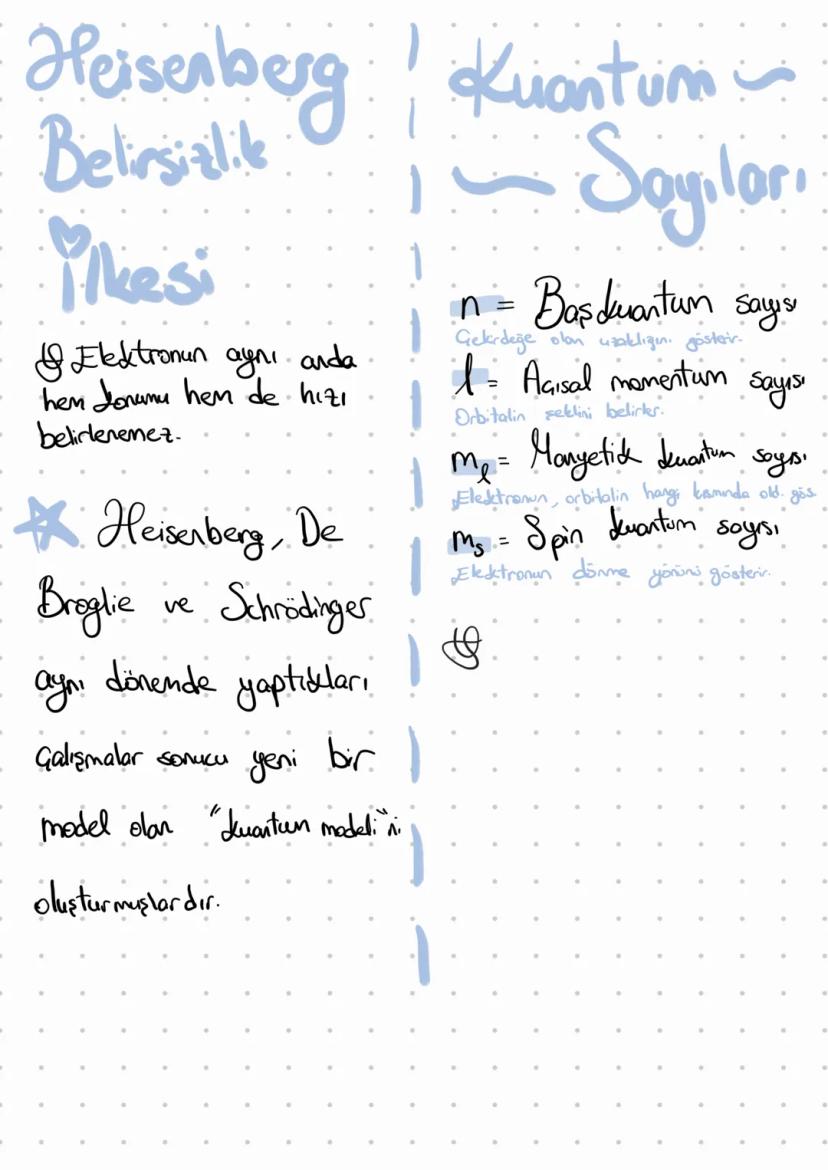 Heisenberg
Belirsizlik
İlkesi
Elektronun aynı anda
hem konumu hem de hızı
belirlenemez.
Heisenberg, De
Broglie ve Schrödinger
aynı dönemde yaptıkları
çalışmalar sonucu yeni bir
model olan "kuantum modeli"ni
oluşturmuşlardır.
Kuantum
Sayıları
n = Baş kuantum sayısı
Çekirdeğe olan uzaklığını gösterir.
l = Açısal momentum sayısı
Orbitalin şeklini belirler.
mₗ = Manyetik kuantum sayısı
Elektronun, orbitalin hangi kısmında old. gös
mₛ = Spin kuantum sayısı
Elektronun dönme yönünü gösterir.